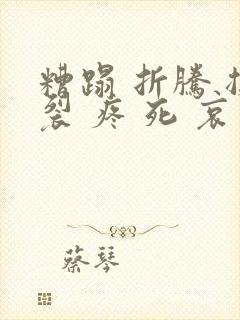 糟蹋 折騰
裂 疼 死 哀
蔡琴